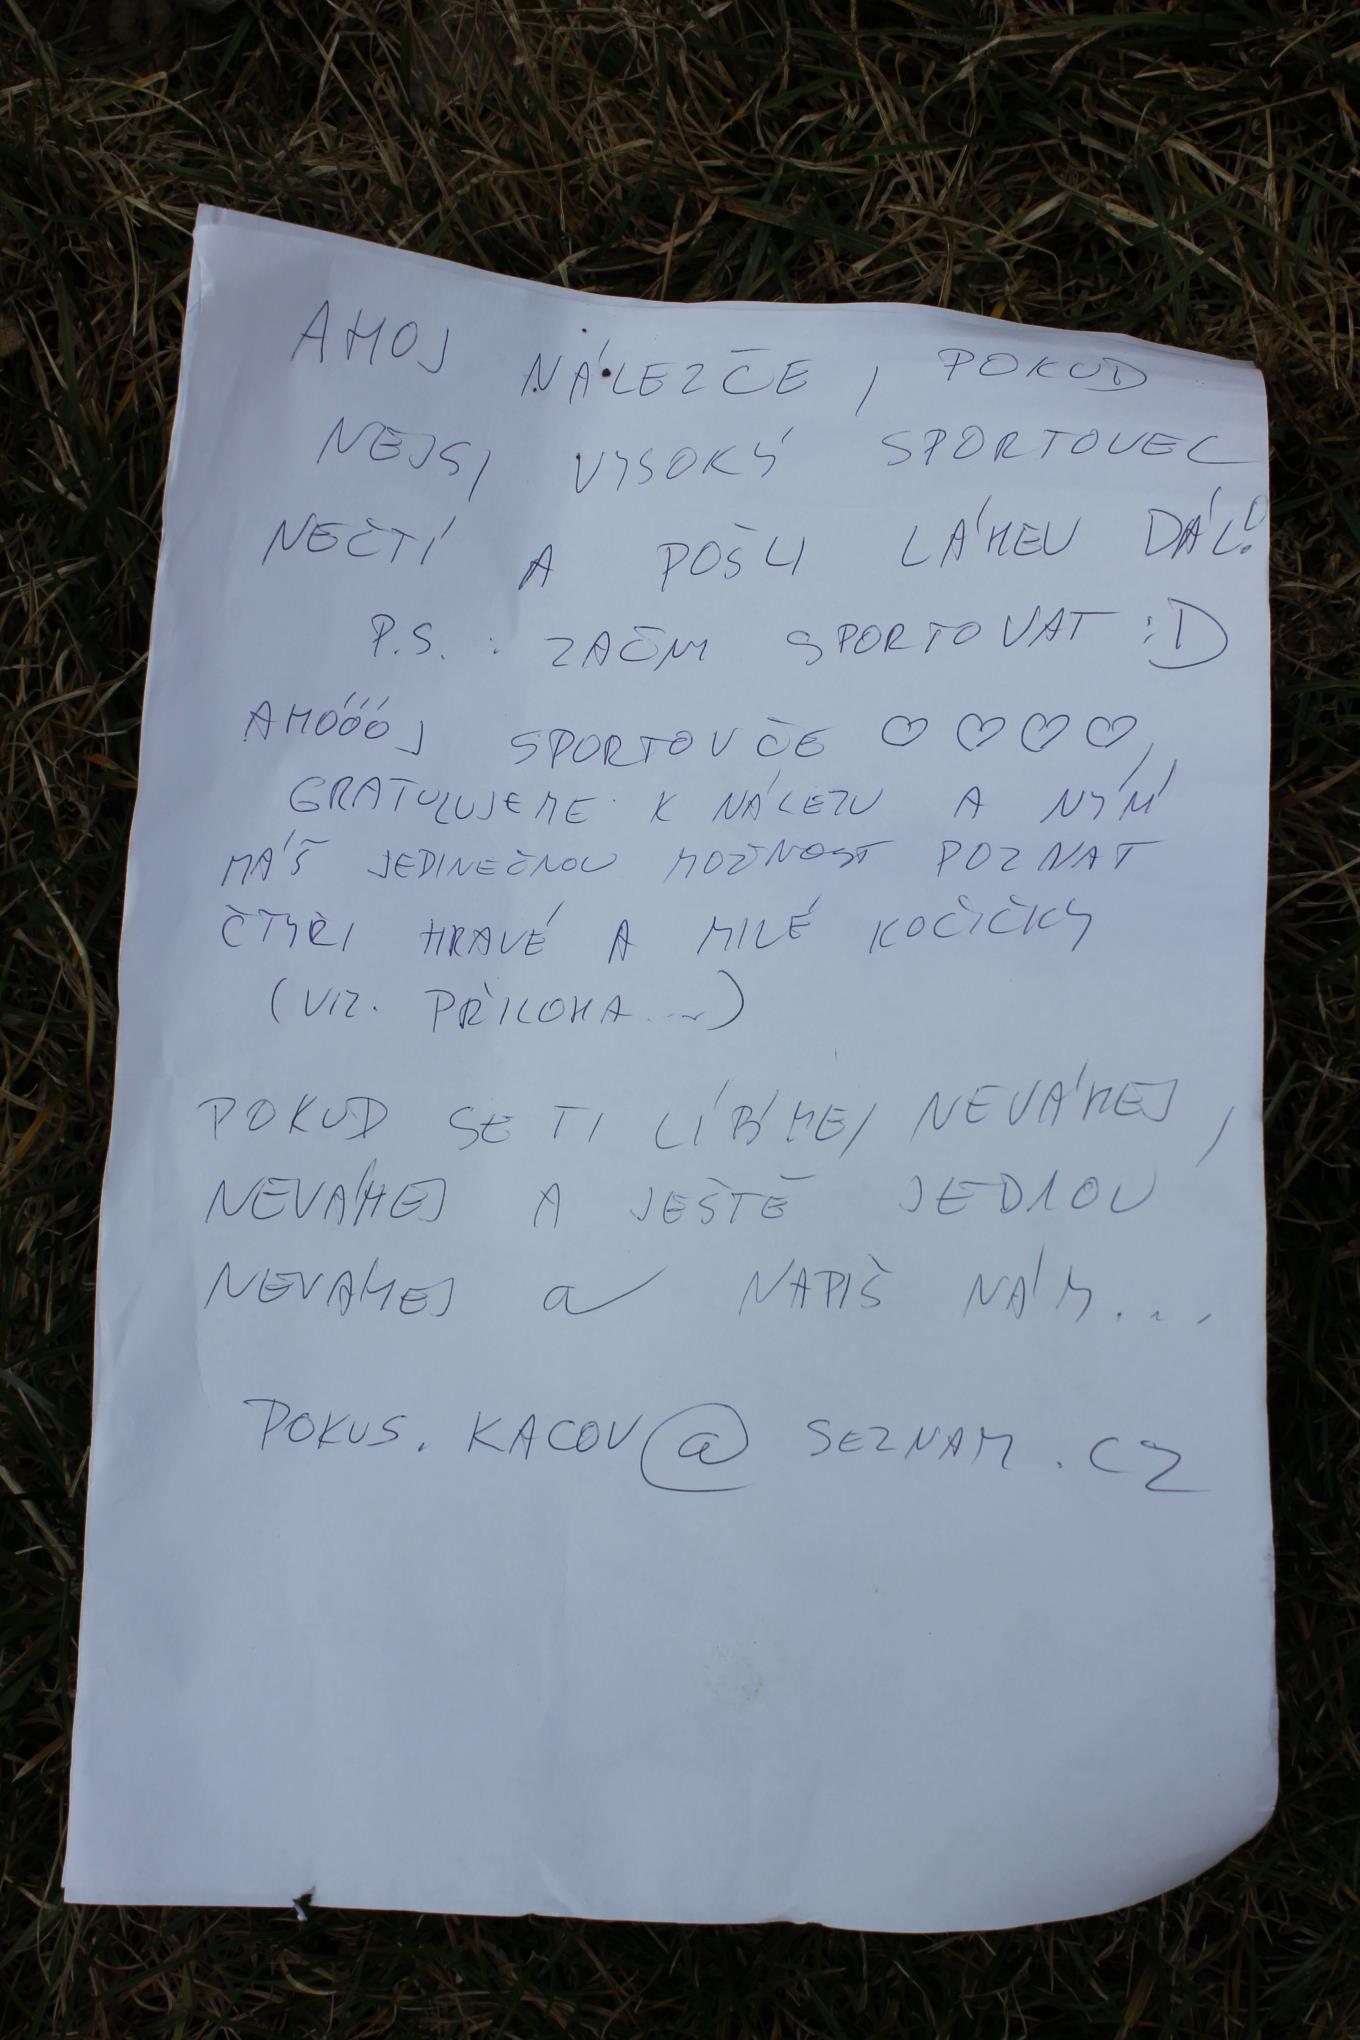 AHOJ NÁLEZČE, POKUD
NEJSI VYSOKÝ SPORTOVEC
NEČTI A POŠLI LÁHEV DÁL!
P.S.: ZAČNI SPORTOVAT :D
AHÓÓÓJ SPORTOVČE ♡ ♡ ♡ ♡,
GRATULUJEME K NÁLEZU A NYNÍ
MÁŠ JEDINEČNOU MOŽNOST POZNAT
ČTYŘI HRAVÉ A MILÉ KOČIČKY
(VIZ. PŘÍLOHA...)
POKUD SE TI LÍBÍME, NEVÁHEJ,
NEVÁHEJ A JEŠTĚ JEDNOU
NEVÁHEJ a NAPIŠ NÁM...
POKUS.KACOV@SEZNAM.CZ